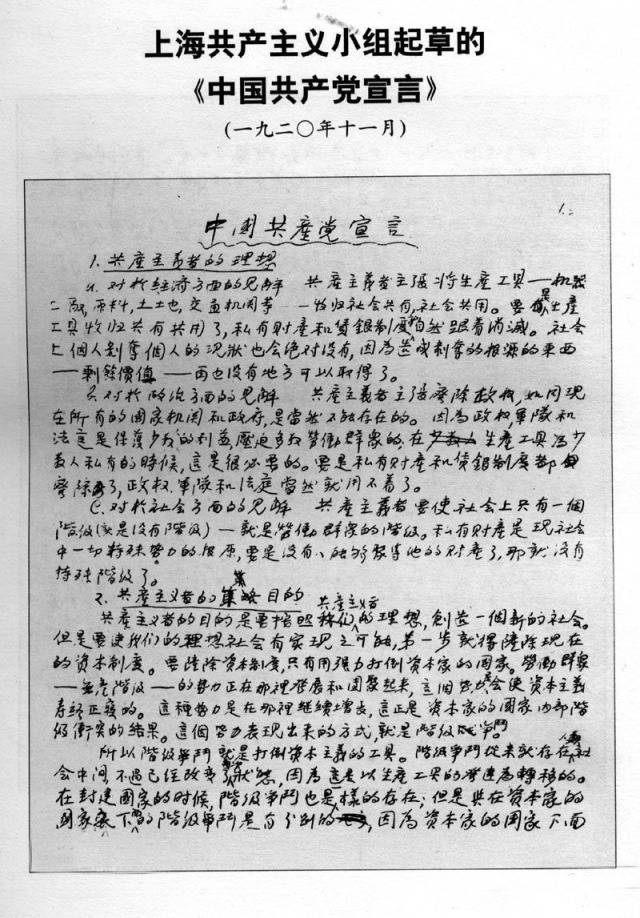 上海共产主义小组起草的
《中国共产党宣言》
(一九二〇年十一月)
1.
中國共產党宣言
1. 共產主義者的理想
a. 对於经济方面的见解 共產主義者主張将生產工具——机器
工厰,原料,土地,交通机関等——收归社会共有,社会共用。要是生產
工具收归共有共用了,私有财產和賃銀制度自然跟着消滅。社会
上個人剥奪個人的现狀也会绝对没有,因為造成剥奪的根源的東西
——剩餘價值——再也没有地方可以取得了。
b. 对於政治方面的见解 共產主義者主張廢除政权,如同现
在所有的國家机関和政府,是當然不能存在的。因為政权,軍隊和
法庭是保護少数人的利益,壓迫多数勞働群衆的,在生產工具為少
数人私有的時候,這是很必要的。要是私有财產和賃銀制度都
廢除了,政权、軍隊和法庭當然就用不着了。
C. 对於社会方面的见解 共產主義者要使社会上只有一個
階级(就是没有階级)——就是勞働群衆的階级。私有财產是现社会
中一切特殊势力的根原,要是没有人能够聚集他的财產了,那就没有
特殊階级了。
2. 共產主义者的目的
共產主义者的目的是要按照共產主义者的理想,創造一個新的社会。
但是要使我们的理想社会有实现之可能,第一步就得鏟除现在
的资本制度。要鏟除资本制度,只有用强力打倒资本家的國家。勞働群衆
——無產階级——的势力正在那裡發展和团聚起来,這個势力会使资本主義
寿终正寢的。這種势力是在那裡继續增長,這正是资本家的國家内部階
级衝突的结果。這個势力表现出来的方式,就是階级争鬥。
所以階级争鬥就是打倒资本主義的工具。階级争鬥從来就存在人類社
会中间,不過已经改变狀態,因為這是以生產工具的發達為轉移的。
在封建國家的時候,階级争鬥也是一樣的存在;但是與在资本家的
國家下面的階级争鬥是有分别的,因為资本家的國家下面